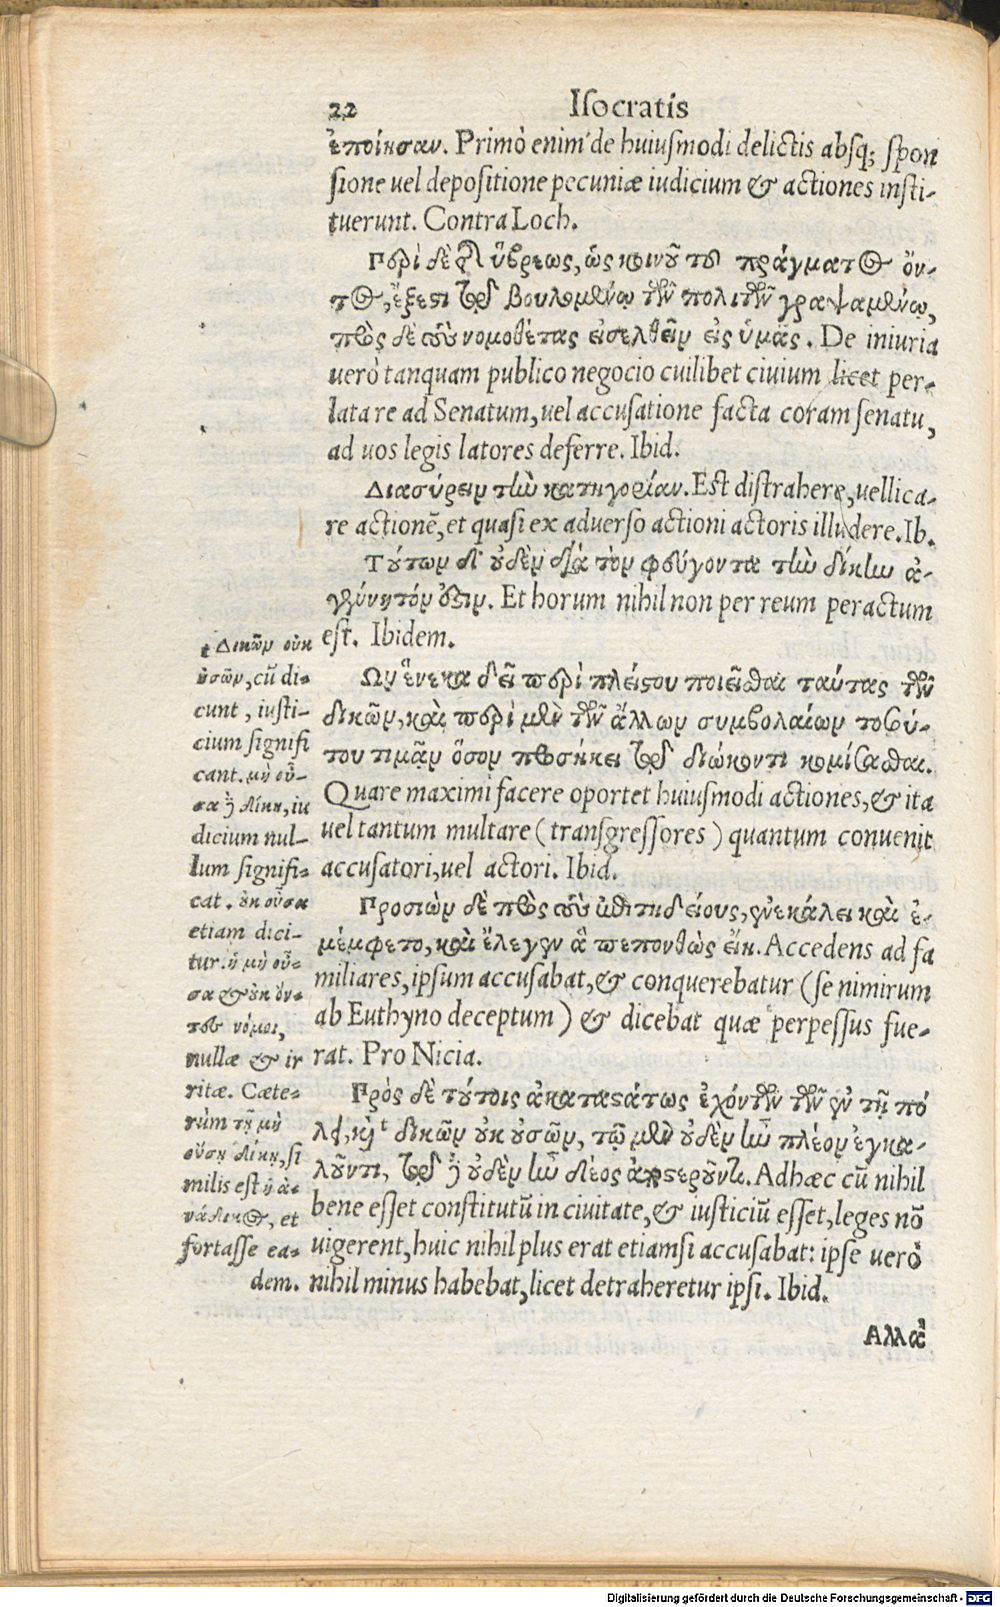 22 Isocratis
ἐποίησαν. Primò enim de huiusmodi delictis absq; spon
sione uel depositione pecuniæ iudicium & actiones insti-
tuerunt. Contra Loch.
Περὶ δὲ τῆς ὕβρεως, ὡς κοινοῦ τοῦ πράγματος ὄν-
τος, ἔξεστι τῷ βουλομένῳ τῶν πολιτῶν γραψαμένῳ,
πρὸς δὲ τοὺς νομοθέτας εἰσελθεῖν εἰς ὑμᾶς. De iniuria
uerò tanquam publico negocio cuilibet ciuium licet per-
latare ad Senatum, uel accusatione facta coram senatu,
ad uos legis latores deferre. Ibid.
Διασύρειν τὴν κατηγορίαν. Est distrahere, uellica-
re actionẽ, et quasi ex aduerso actioni actoris illudere. Ib.
Τούτων δ' οὐδὲν διὰ τὸν φεύγοντα τὴν δίκην ἀ-
γένητόν ἐστιν. Et horum nihil non per reum peractum
est. Ibidem.
Ὧν ἕνεκα δεῖ περὶ πλείστου ποιεῖσθαι ταύτας τῶν
δικῶν, καὶ περὶ μὲν τῶν ἄλλων συμβολαίων τοσού-
του τιμᾶν ὅσον προσήκει τῷ διώκοντι κομίσασθαι.
Quare maximi facere oportet huiusmodi actiones, & ita
uel tantum multare (transgressores) quantum conuenit
accusatori, uel actori. Ibid.
Προσιὼν δὲ πρὸς τοὺς ἐπιτηδείους, ἐνεκάλει καὶ ἐ-
μέμφετο, καὶ ἔλεγεν ἃ πεπονθὼς εἴη. Accedens ad fa
miliares, ipsum accusabat, & conquerebatur (se nimirum
ab Euthyno deceptum) & dicebat quæ perpessus fue-
rat. Pro Nicia.
Πρὸς δὲ τούτοις ἀκαταστάτως ἐχόντων τῶν ἐν τῇ πό
λει, καὶ δικῶν οὐκ οὐσῶν, τῷ μὲν οὐδὲν ἦν πλέον ἐγκα-
λοῦντι, τῷ δ' οὐδὲν ἦν δέος ἀποστεροῦντι. Ad hæc cũ nihil
bene esset constitutũ in ciuitate, & iusticiũ esset, leges nõ
uigerent, huic nihil plus erat etiamsi accusabat: ipse uerò
nihil minus habebat, licet detraheretur ipsi. Ibid.
Ἀλλὰ
Δικῶν οὐκ
οὐσῶν, cũ di-
cunt, iusti-
cium signifi
cant. μὴ οὖ-
σα δὲ δίκη, iu
dicium nul-
lum signifi-
cat. οὐκ οὖσα
etiam dici-
tur. ἡ μὴ οὖ-
σα & οὐκ ὄν-
τες νόμοι,
nullæ & ir
ritæ. Cæte-
rùm τῇ μὴ
οὔσῃ δίκῃ, si
milis est ἡ ἀ-
νάδικος, et
fortasse ea-
dem.
Digitalisierung gefördert durch die Deutsche Forschungsgemeinschaft - DFG